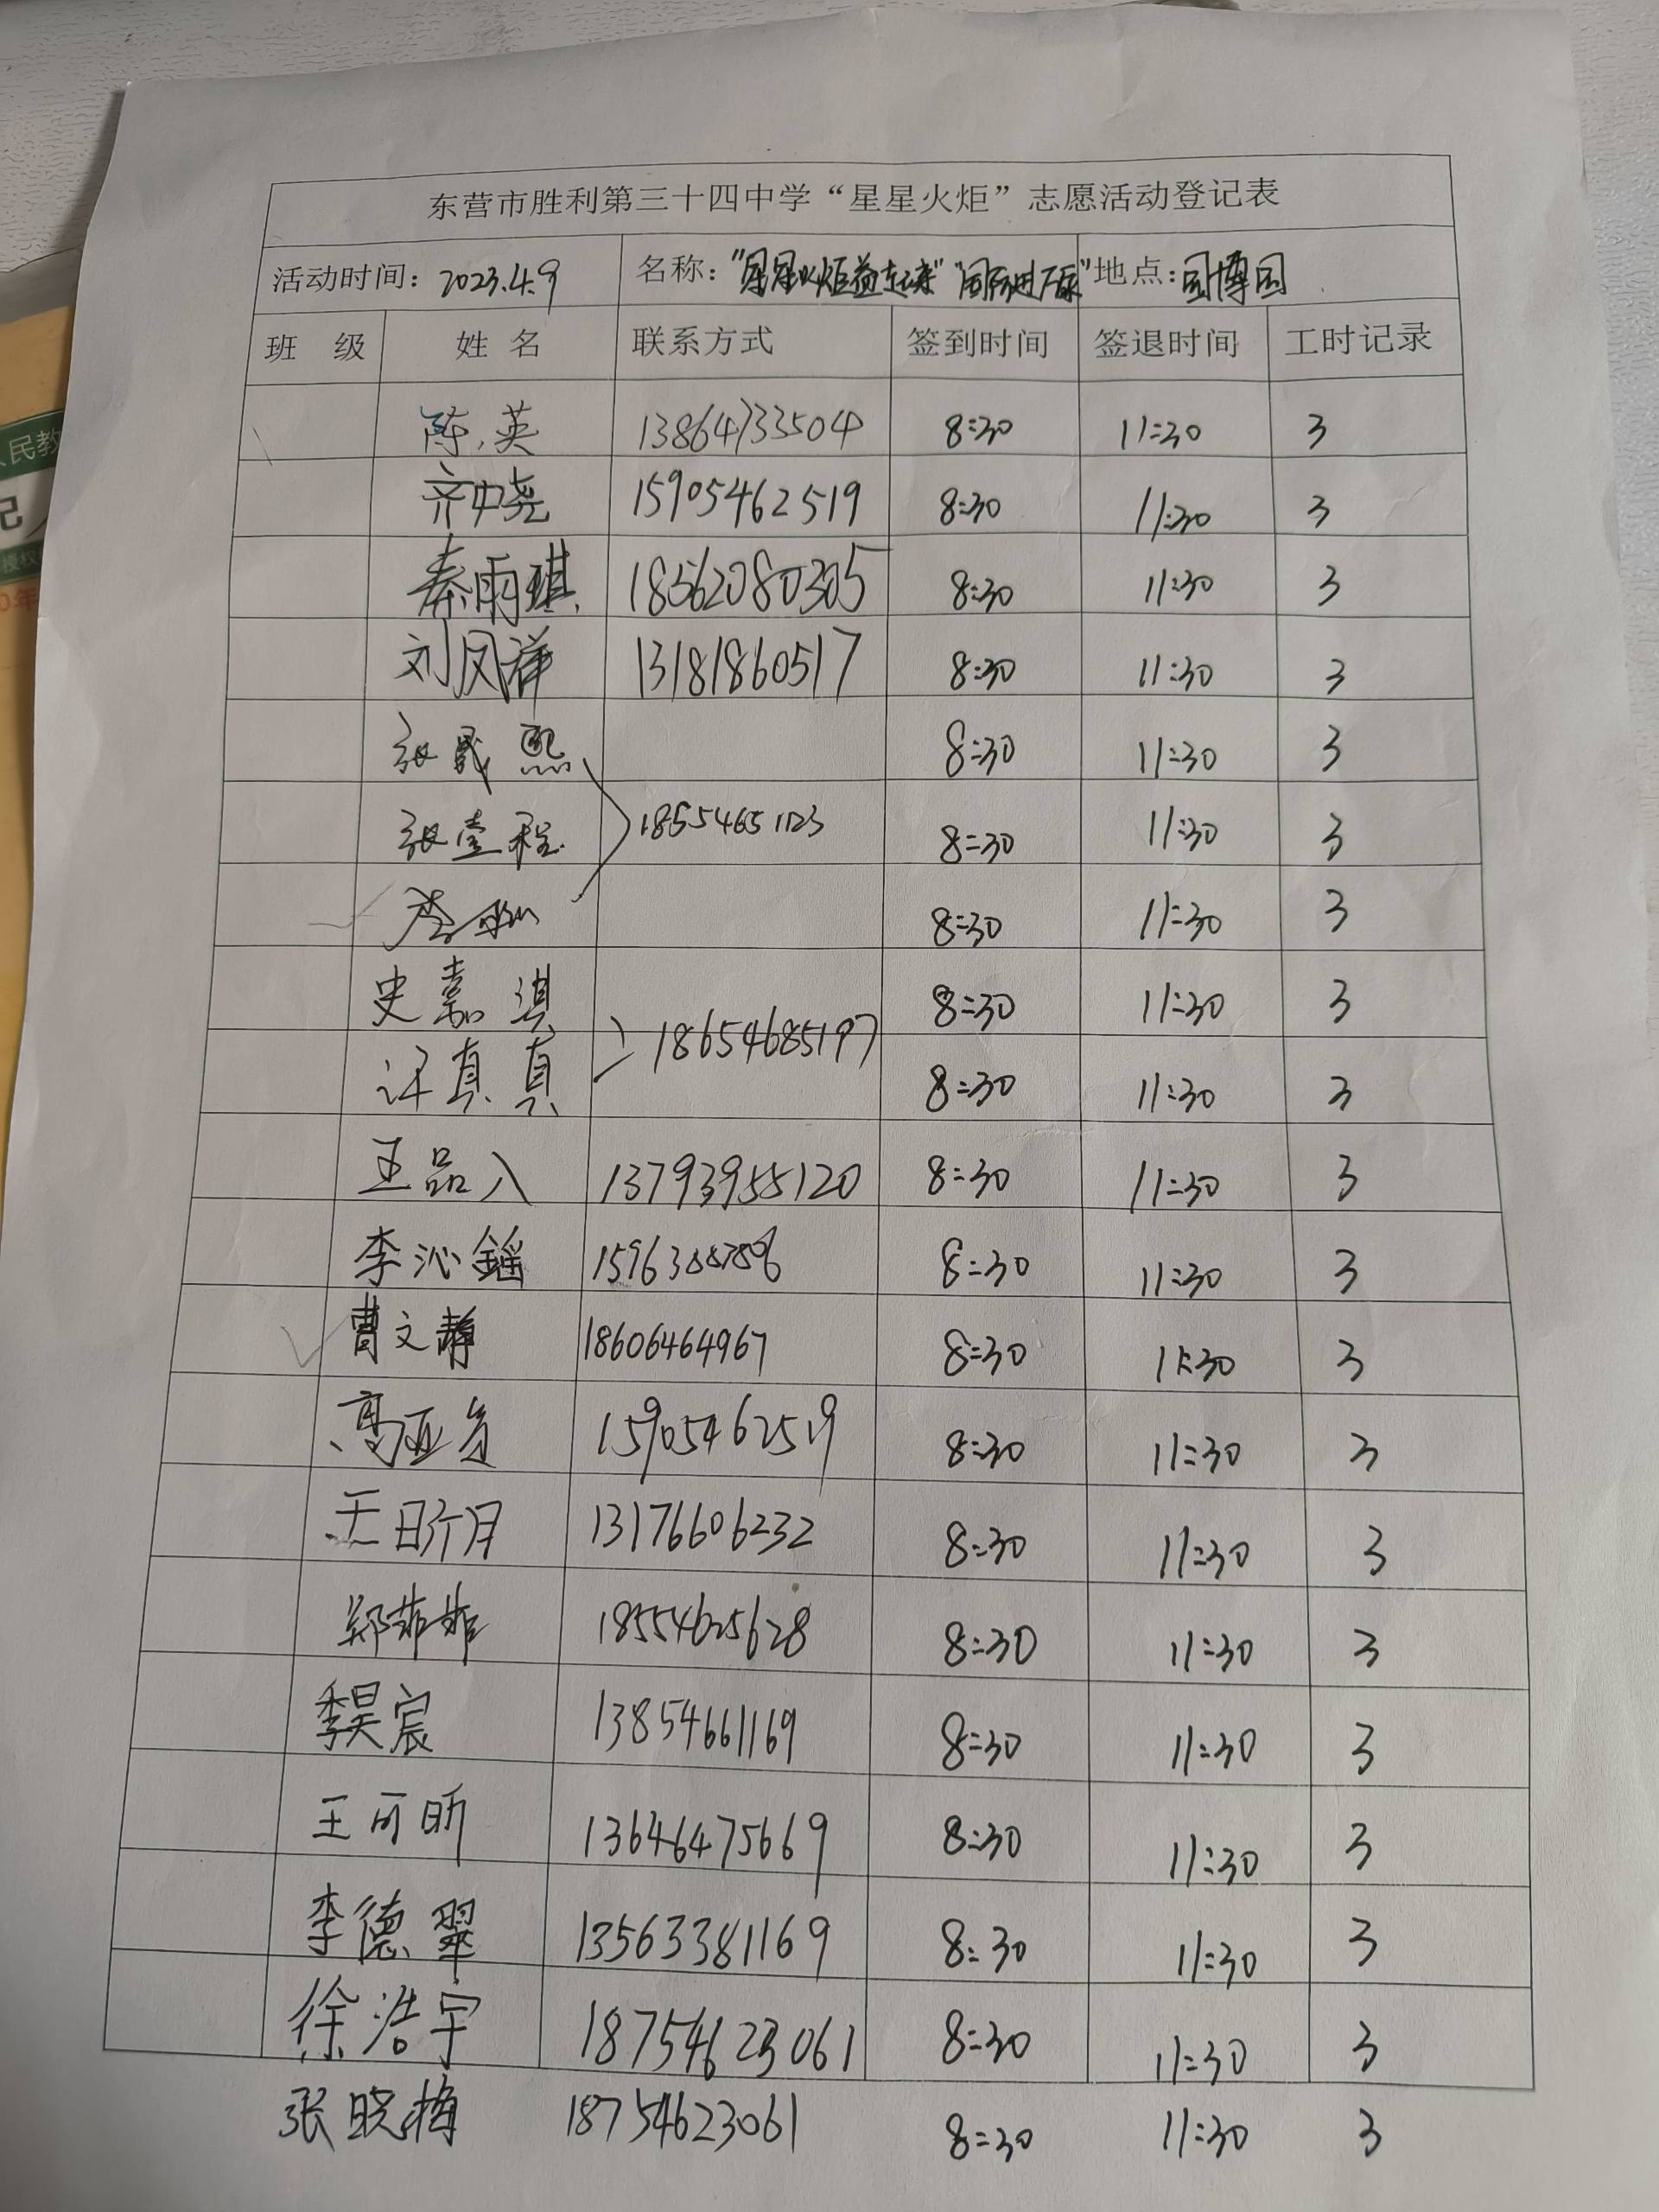 东营市胜利第三十四中学“星星火炬”志愿活动登记表
活动时间：2023.4.9 名称：“星星火炬益起来” 地点：园博园
班 级 姓 名 联系方式 签到时间 签退时间 工时记录
陈英 13864733504 8:30 11:30 3
齐中尧 15905462519 8:30 11:30 3
秦雨琪 18562080305 8:30 11:30 3
刘凤祥 13181860517 8:30 11:30 3
张晟熙 8:30 11:30 3
张壹程 18554651123 8:30 11:30 3
李 8:30 11:30 3
史嘉淇 8:30 11:30 3
许真真 18654685197 8:30 11:30 3
王品入 13793955120 8:30 11:30 3
李沁鑫 8:30 11:30 3
曹文静 18606464967 8:30 11:30 3
高亚 15905462519 8:30 11:30 3
王 13176606232 8:30 11:30 3
郑菲菲 18554625628 8:30 11:30 3
季昊宸 13854661169 8:30 11:30 3
王可昕 13646475669 8:30 11:30 3
李德翠 13563381169 8:30 11:30 3
徐浩宇 18754623061 8:30 11:30 3
张晓梅 18754623061 8:30 11:30 3